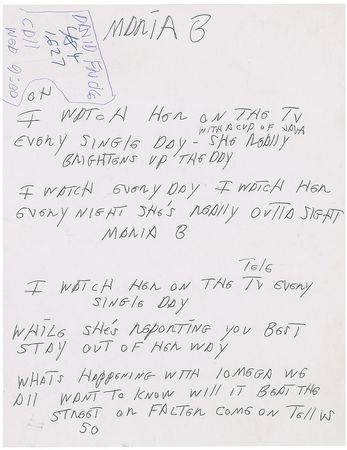 MARIA B
DAVID FRICKE
484
1627
CALL
WED 9:00
OH
I WATCH HER ON THE TV
EVERY SINGLE DAY - SHE REALLY
WITH A CUP OF JAVA
BRIGHTENS UP THE DAY
I WATCH EVERY DAY I WATCH HER
EVERY NIGHT SHE'S REALLY OUTTA SIGHT
MARIA B
TELE
I WATCH HER ON THE TV EVERY
SINGLE DAY
WHILE SHE'S REPORTING YOU BEST
STAY OUT OF HER WAY
WHATS HAPPENING WITH IOMEGA WE
ALL WANT TO KNOW WILL IT BEAT THE
STREET OR FALTER COME ON TELL US
SO